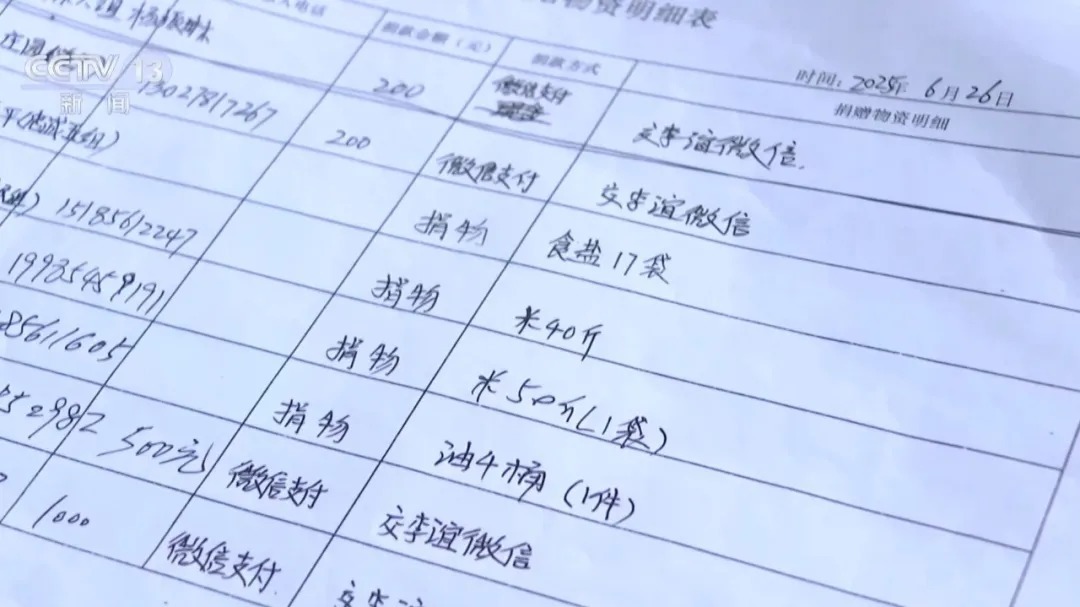 物资明细表
时间：2025年6月26日
CCTV 13
新闻
人电话 捐款金额（元） 捐款方式 捐赠物资明细
13027817267 200 微信支付 交李谊微信.
200 微信支付 交李谊微信
15185612247 捐物 食盐17袋
19985459191 捐物 米40斤
85611605 捐物 米50斤(1袋)
捐物 油4桶(1件)
52982 500元 微信支付 交李谊微信
1000 微信支付 交李